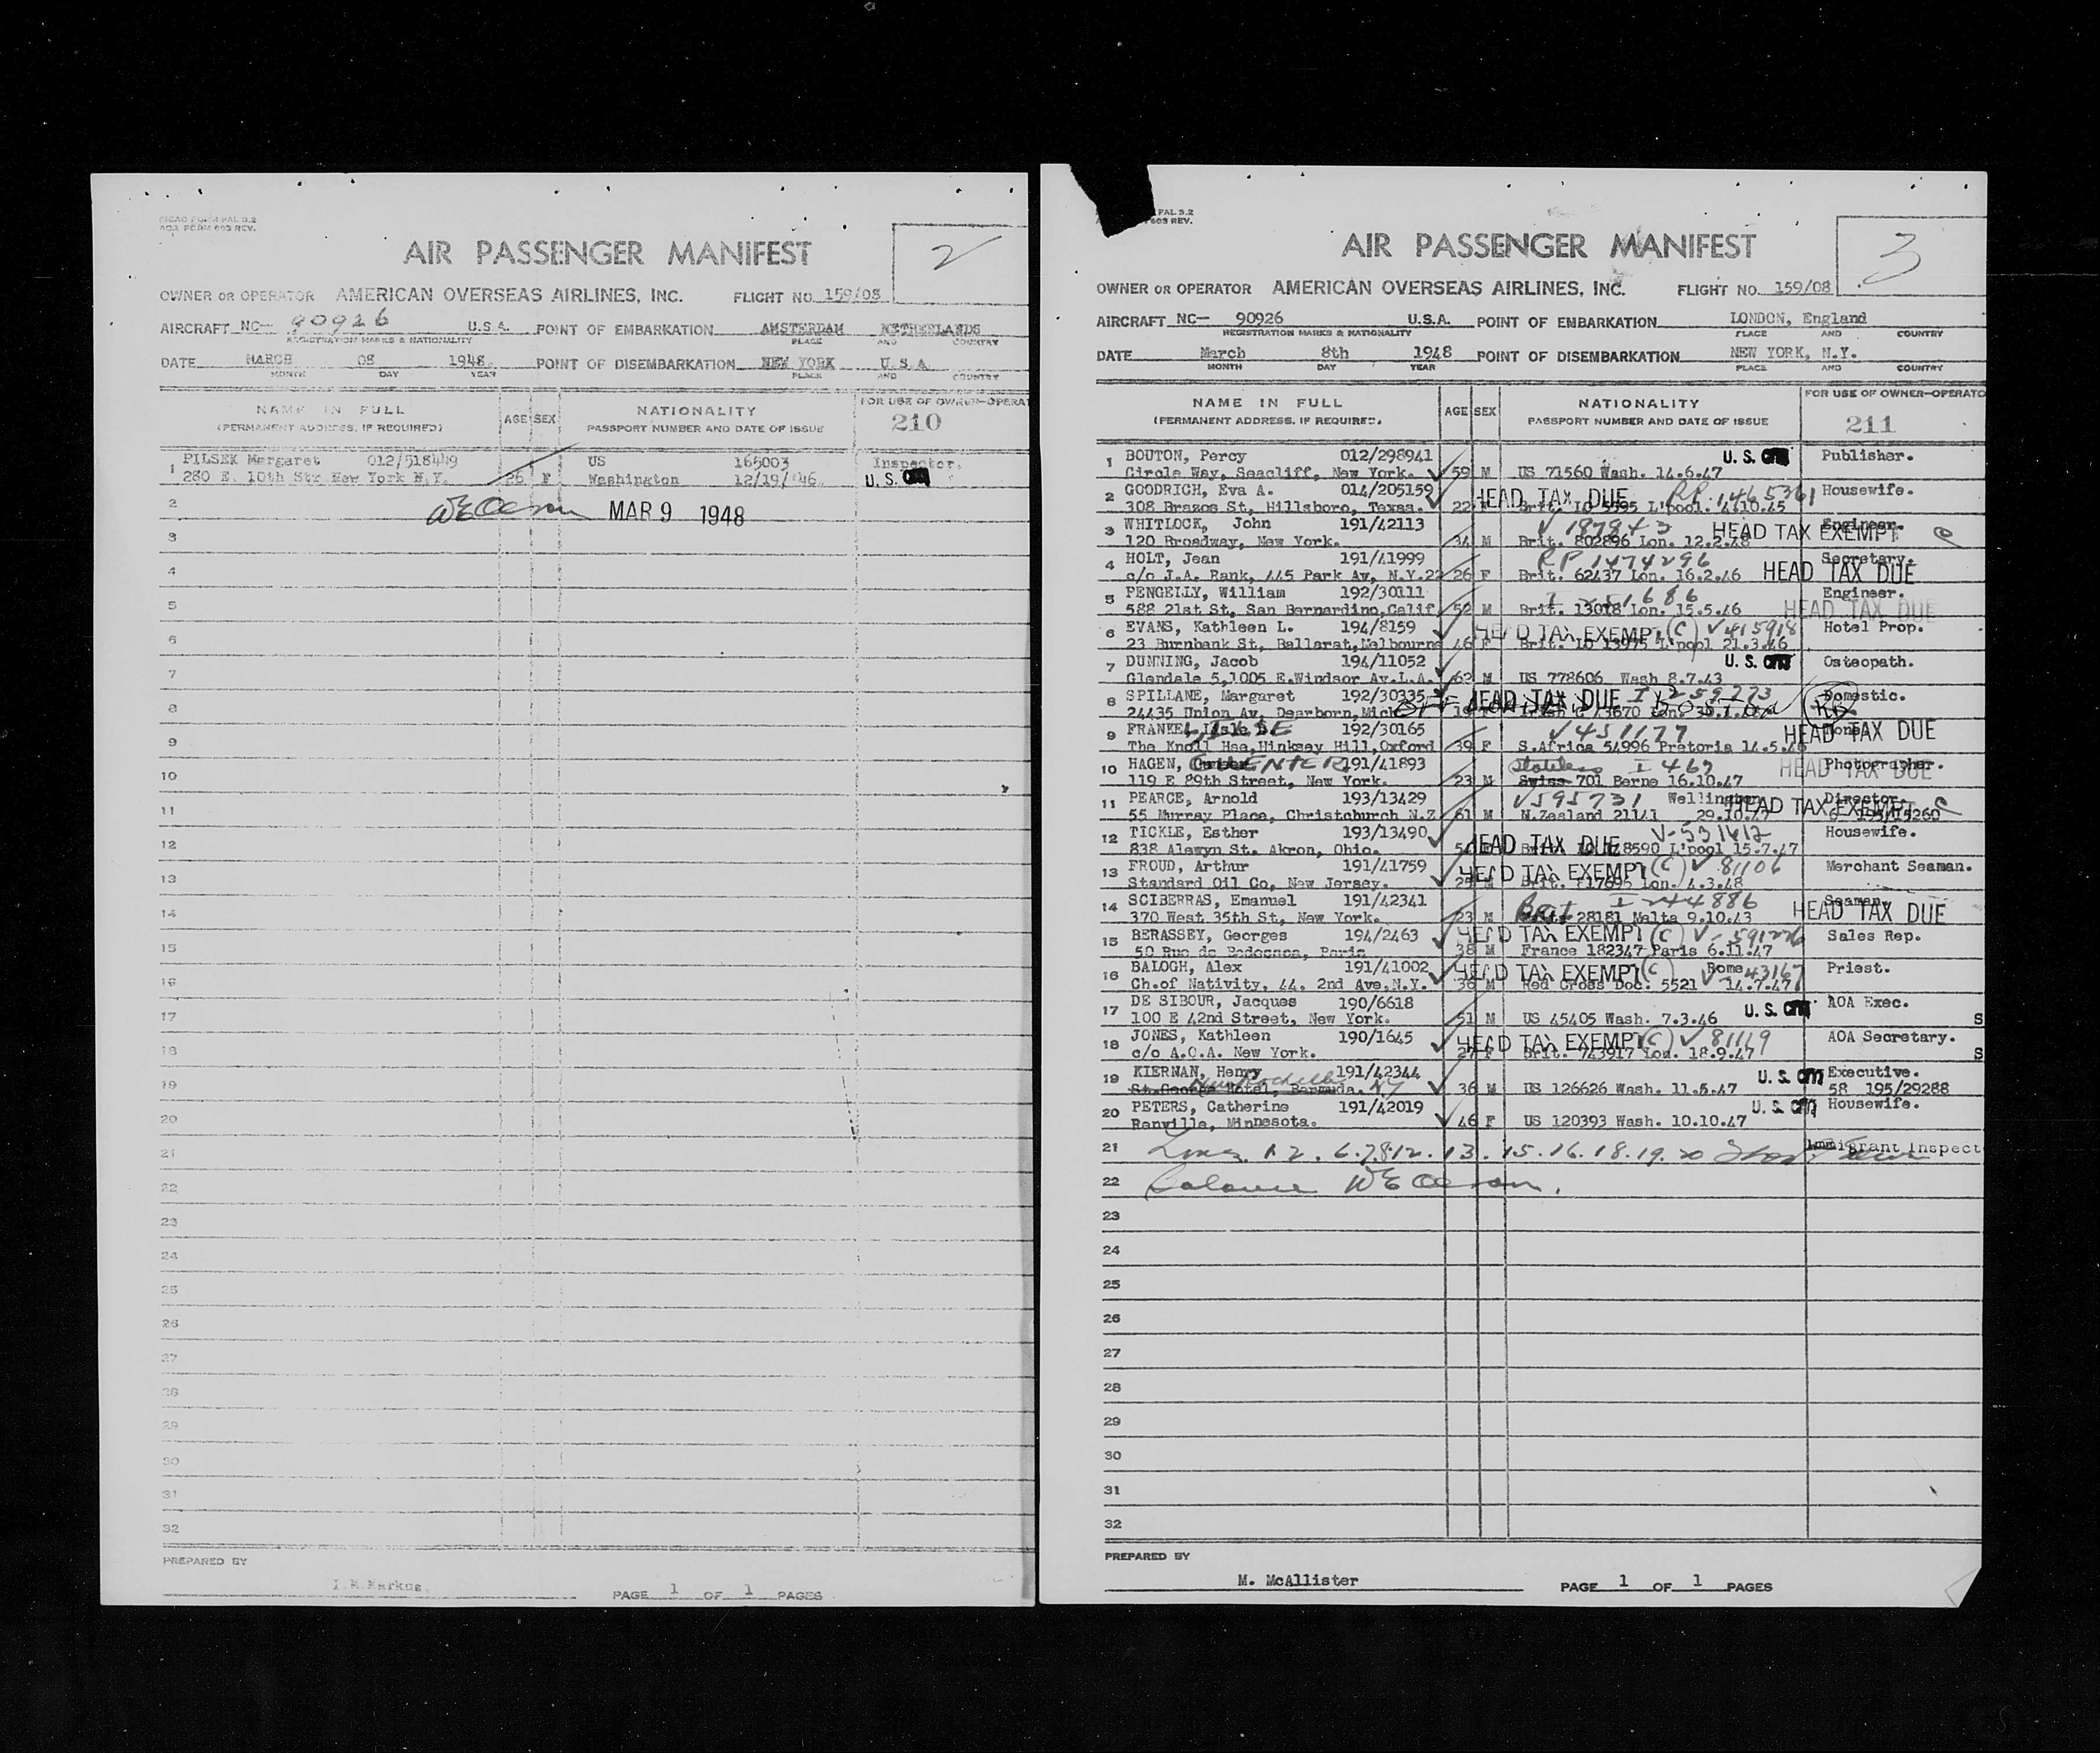 PICAO FORM PAL 3.2
AOA FORM 603 REV.
2
AIR PASSENGER MANIFEST
OWNER OR OPERATOR AMERICAN OVERSEAS AIRLINES, INC. FLIGHT NO. 159/08
AIRCRAFT NC— 90926 U.S.A. POINT OF EMBARKATION AMSTERDAM NETHERLANDS
REGISTRATION MARKS & NATIONALITY PLACE AND COUNTRY
DATE MARCH 08 1948. POINT OF DISEMBARKATION NEW YORK U.S.A.
MONTH DAY YEAR PLACE AND COUNTRY
NAME IN FULL AGE SEX NATIONALITY FOR USE OF OWNER-OPERAT
(PERMANENT ADDRESS, IF REQUIRED) PASSPORT NUMBER AND DATE OF ISSUE 210
1 PILSEK Margaret 012/518449 US 165003 Inspector.
280 E. 10th Str New York N.Y. 26 F Washington 12/19/'46. U.S.
2 WE Olsson MAR 9 1948
3
4
5
6
7
8
9
10
11
12
13
14
15
16
17
18
19
20
21
22
23
24
25
26
27
28
29
30
31
32
PREPARED BY
I.K.Markus. PAGE 1 OF 1 PAGES
PAL 3.2
603 REV.
3
AIR PASSENGER MANIFEST
OWNER OR OPERATOR AMERICAN OVERSEAS AIRLINES, INC. FLIGHT NO. 159/08
AIRCRAFT NC— 90926 U.S.A. POINT OF EMBARKATION LONDON, England
REGISTRATION MARKS & NATIONALITY PLACE AND COUNTRY
DATE March 8th 1948 POINT OF DISEMBARKATION NEW YORK, N.Y.
MONTH DAY YEAR PLACE AND COUNTRY
NAME IN FULL AGE SEX NATIONALITY FOR USE OF OWNER-OPERATO
(PERMANENT ADDRESS, IF REQUIRED) PASSPORT NUMBER AND DATE OF ISSUE 211
1 BOUTON, Percy 012/298941 U.S. Publisher.
Circle Way, Seacliff, New York. 59 M US 71560 Wash. 14.6.47
2 GOODRICH, Eva A. 014/205159 HEAD TAX DUE RP 1465361 Housewife.
308 Brazos St, Hillsboro, Texas. 22 Brit. LO 5995 L'pool. 4.10.45
3 WHITLOCK, John 191/42113 V 187843 HEAD TAX EXEMPT Engineer. C
120 Broadway, New York. 34 M Brit. 802896 Lon. 12.2.48
4 HOLT, Jean 191/41999 RP 1474296 Secretary.
c/o J.A. Rank, 445 Park Av, N.Y.22 26 F Brit. 62437 Lon. 16.2.46 HEAD TAX DUE
5 PENGELLY, William 192/30111 I 251686 Engineer.
588 21st St, San Bernardino,Calif. 52 M Brit. 13018 Lon. 15.5.46 HEAD TAX DUE
6 EVANS, Kathleen L. 194/8159 HEAD TAX EXEMPT (C) V 415918 Hotel Prop.
23 Burnbank St, Ballarat,Melbourne 46 F Brit. LO 13975 L'pool 21.3.46
7 DUNNING, Jacob 194/11052 U.S. Osteopath.
Glendale 5,1005 E.Windsor Av.L.A. 62 M US 778606 Wash 8.7.43
8 SPILLANE, Margaret 192/30335 HEAD TAX DUE I 1259273 Domestic.
24435 Union Av, Dearborn,Mich
9 FRANKEL, ILSE 192/30165 V 451177 None.
The Knoll Hse,Hinksey Hill,Oxford 39 F S.Africa 54996 Pretoria 14.5.46 HEAD TAX DUE
10 HAGEN, GUENTER 191/41893 Stateless I 469 Photographer.
119 E 89th Street, New York. 23 M Swiss 701 Berne 16.10.47 HEAD TAX DUE
11 PEARCE, Arnold 193/13429 V 595731 Wellington Director.
55 Murray Place, Christchurch N.Z 61 M N.Zealand 21141 29.10.47 HEAD TAX EXEMPT C
12 TICKLE, Esther 193/13490 HEAD TAX DUE V-531412 Housewife.
838 Alawyn St. Akron, Ohio. 8590 L'pool 15.7.47
13 FROUD, Arthur 191/41759 HEAD TAX EXEMPT (C) V 81106 Merchant Seaman.
Standard Oil Co, New Jersey. 25 M Brit. 817695 Lon. 4.3.48
14 SCIBERRAS, Emanuel 191/42341 Brit I 244886 Seaman.
370 West 35th St, New York. 23 M 28181 Malta 9.10.43 HEAD TAX DUE
15 BERASSEY, Georges 194/2463 HEAD TAX EXEMPT (C) V-591226 Sales Rep.
50 Rue de Bedossea, Paris 38 M France 182347 Paris 6.11.47
16 BALOGH, Alex 191/41002 HEAD TAX EXEMPT (C) Rome V 43167 Priest.
Ch.of Nativity, 44. 2nd Ave,N.Y. 36 M Red Cross Doc. 5521 14.7.47
17 DE SIBOUR, Jacques 190/6618 U.S. AOA Exec.
100 E 42nd Street, New York. 51 M US 45405 Wash. 7.3.46 S
18 JONES, Kathleen 190/1645 HEAD TAX EXEMPT (C) V 81119 AOA Secretary.
c/o A.O.A. New York. 27 F Brit. 743917 Lon. 18.9.47 S
19 KIERNAN, Henry 191/42344 U.S. Executive.
St.George Hotel, Bermuda. New Rochelle NY 36 M US 126626 Wash. 11.5.47 58 195/29288
20 PETERS, Catherine 191/42019 U.S. Housewife.
Renville, Minnesota. 46 F US 120393 Wash. 10.10.47
21 Lines 1.2.6.7.8.12.13.15.16.18.19.20 Immigrant Inspect
22 Balance WE Olsson.
23
24
25
26
27
28
29
30
31
32
PREPARED BY
M. McAllister PAGE 1 OF 1 PAGES